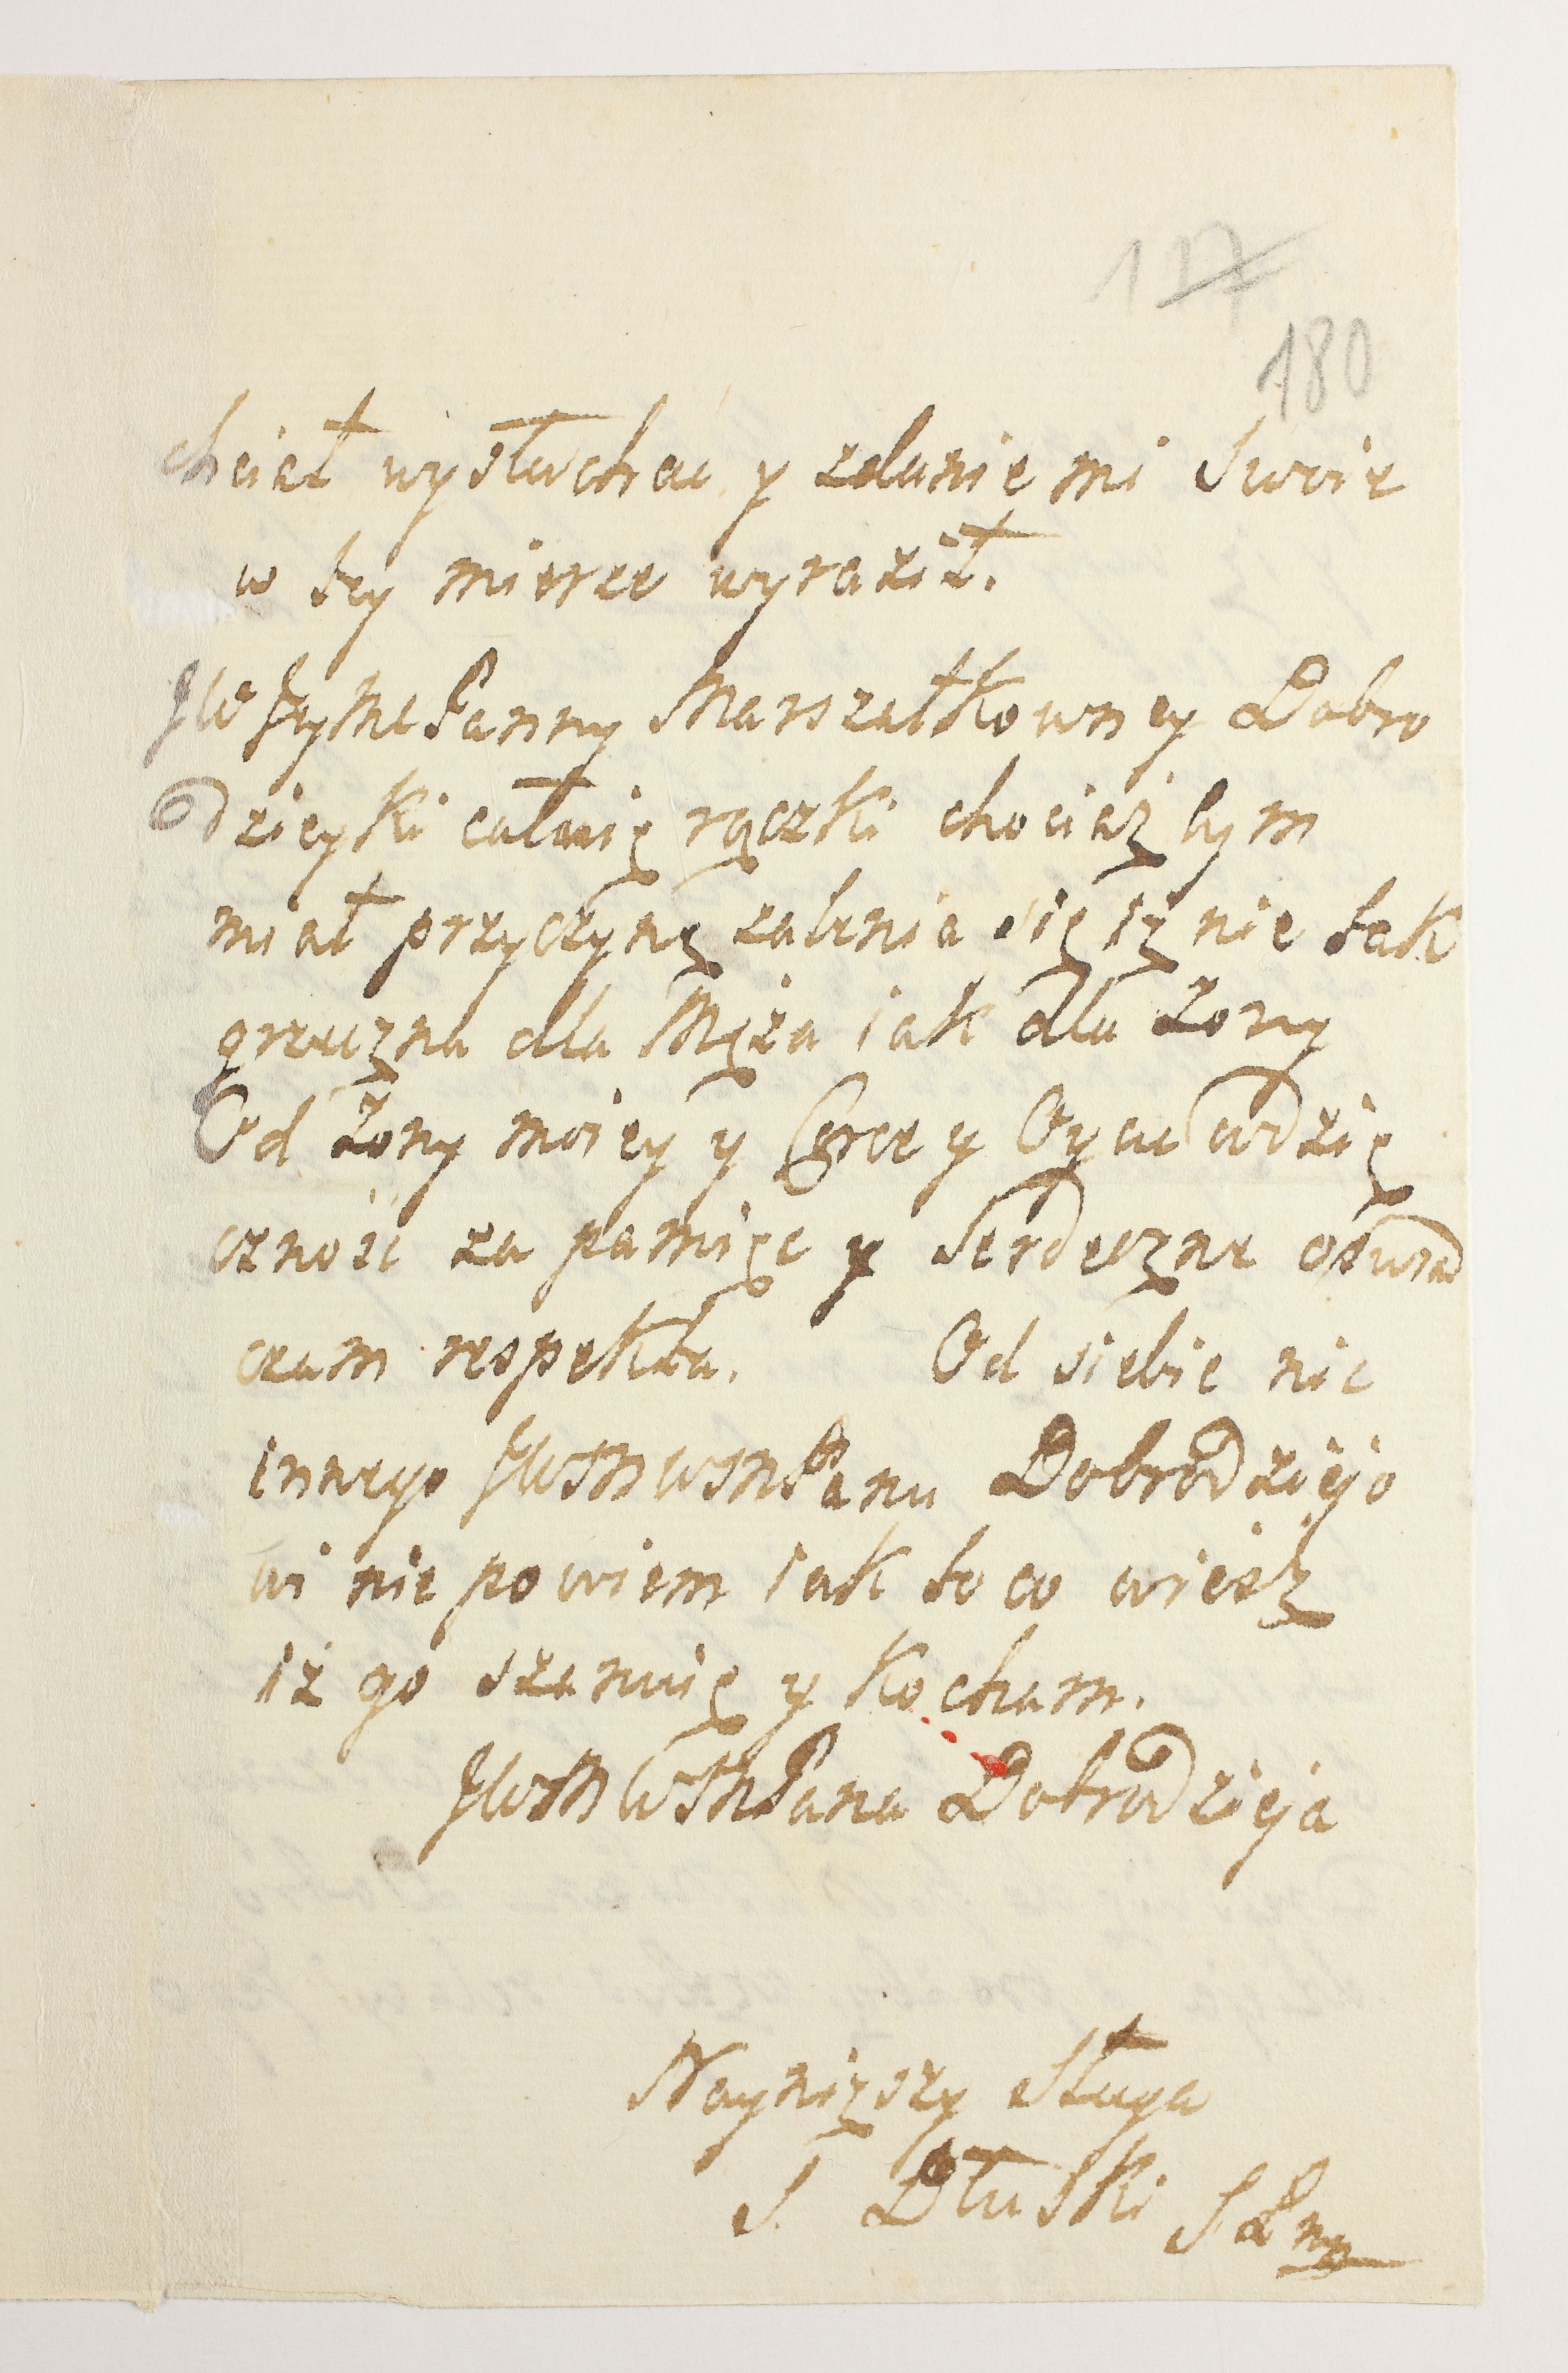 117
180
chciał wysłuchać y zdanie mi Swoie
w tey mierze wyraził.
JW JeyMć Panny Marszałkowney Dobro
dzieyki całuię rączki chociaż bym
miał przyczynę żalenia się iż nie tak
grzeczna dla Męża iak dla Żony
Od Żony moiey y Córce y Oycu wdzię
czność za pamięć y Serdeczne oświad
czam respekta. Od siebie nic
innego JWMWMPanu Dobrodziejo
wi nie powiem iak to co wiesz
iż go szanuię y kocham.
JWMWMPana Dobrodzieja
Nayniższy Sługa
T. Dłuski